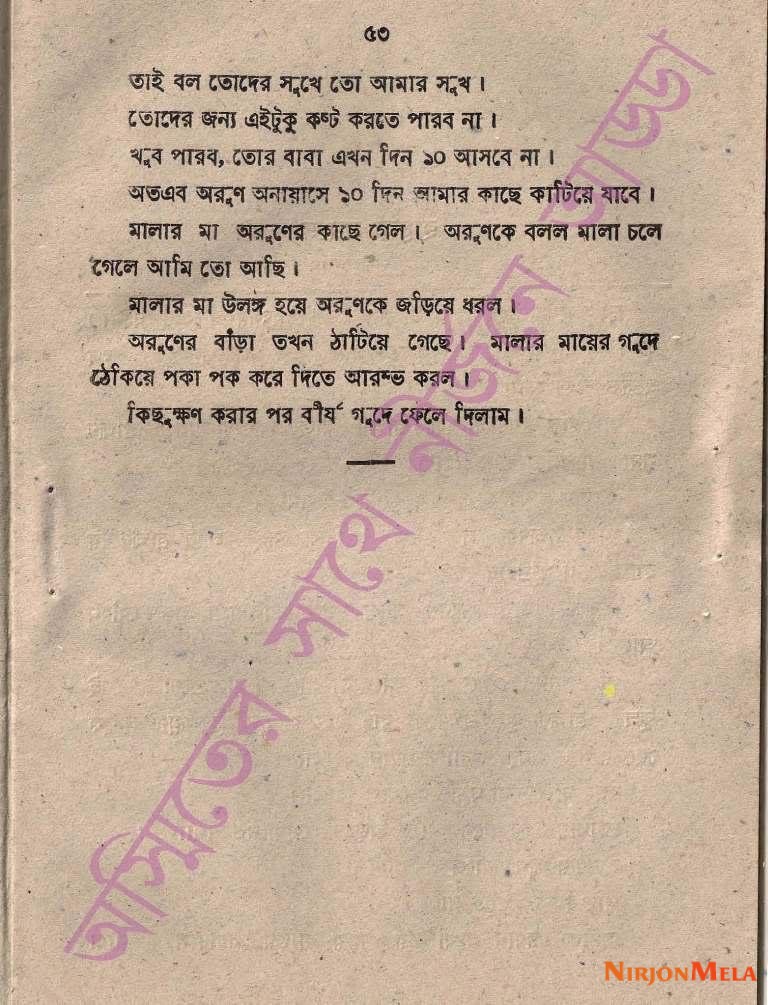 ৫৩
তাই বল তোদের সুখে তো আমার সুখ।
তোদের জন্য এইটুকু কষ্ট করতে পারব না।
খুব পারব, তোর বাবা এখন দিন ১০ আসবে না।
অতএব অরুণ অনায়াসে ১০ দিন আমার কাছে কাটিয়ে যাবে।
মালার মা অরুণের কাছে গেল। অরুণকে বলল মালা চলে
গেলে আমি তো আছি।
মালার মা উলঙ্গ হয়ে অরুণকে জড়িয়ে ধরল।
অরুণের বাঁড়া তখন ঠাটিয়ে গেছে। মালার মায়ের গুদে
ঠেকিয়ে পকা পক করে দিতে আরম্ভ করল।
কিছুক্ষণ করার পর বীর্য গুদে ফেলে দিলাম।
অস্মিতের সাথে নীর্জনে আড্ডা
NIRJONMELA